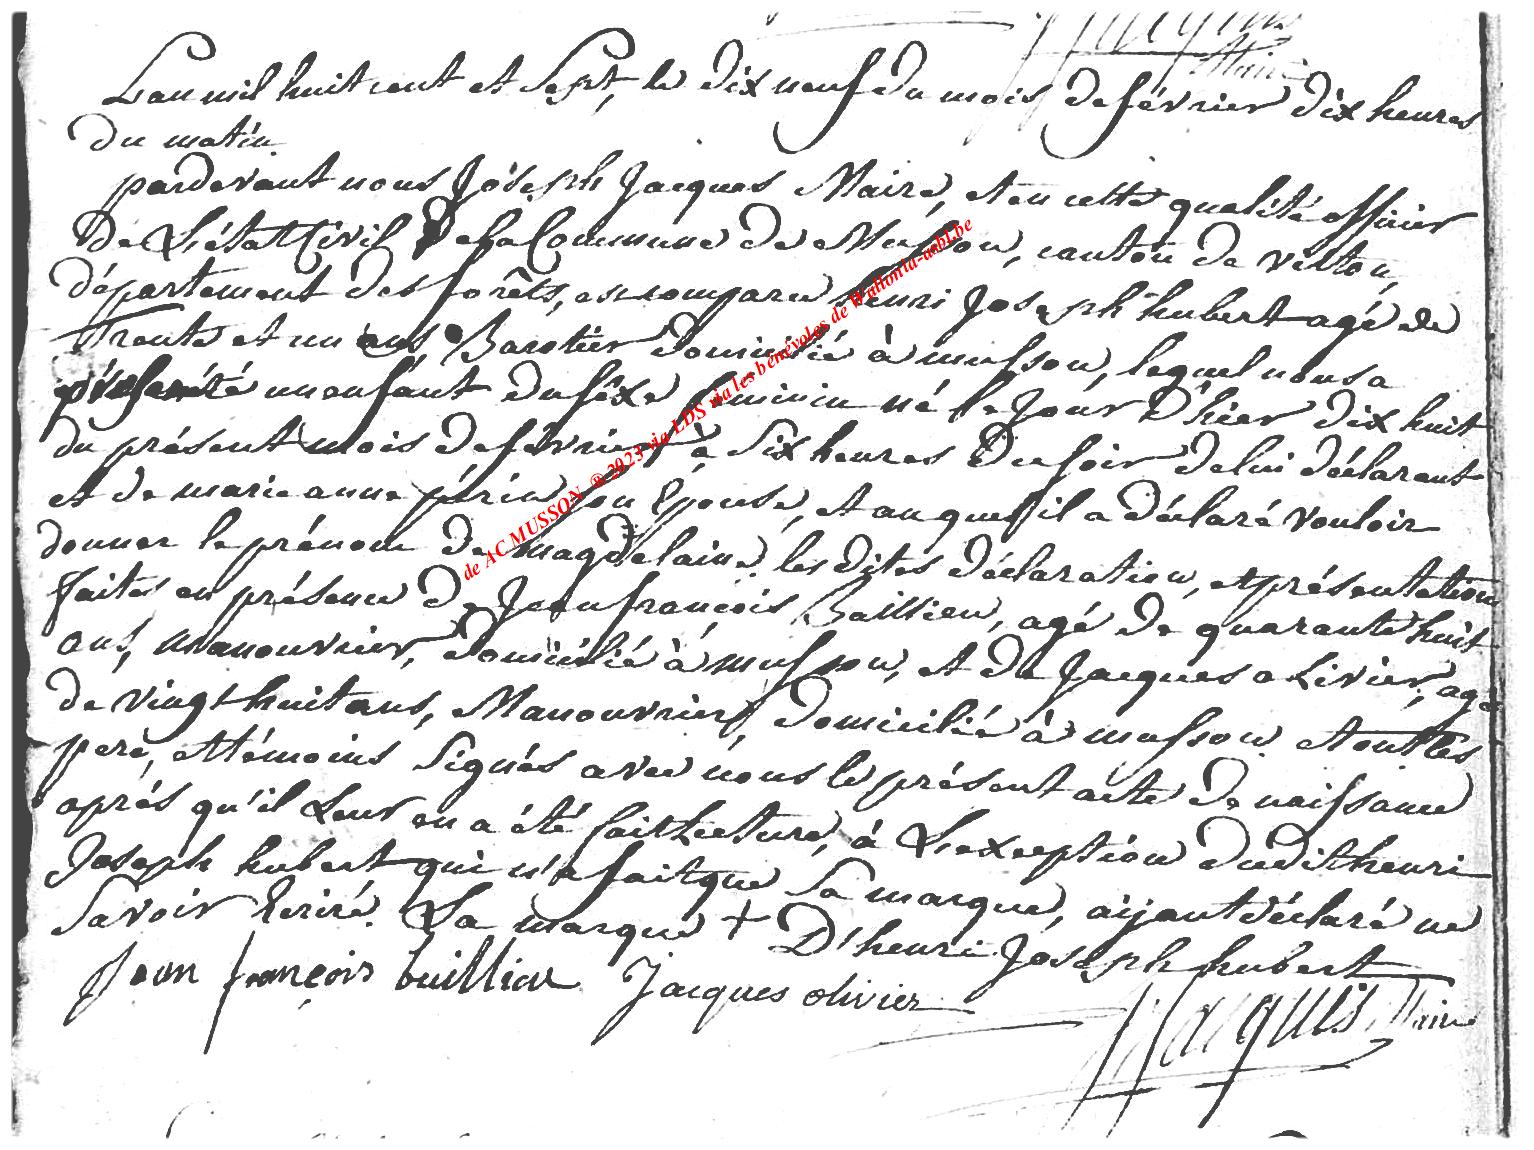 Jacques
Maire
L'an mil huit cent et sept, le dix neuf du mois de février dix heures
du matin
pardevant nous Joseph Jacques Maire, et en cette qualité officier
de L'état Civil de la Commune de Musson, canton de virton,
département des forêts, est comparu henri Joseph hubert agé de
Trente et un ans domicilié à musson, lequel nous a
présenté un enfant du séxe feminin né le Jour d'hier dix huit
du présent mois de février à six heures du soir de lui déclarant
et de marie anne périn son Epouse, et au quel il a déclaré vouloir
donner le prénom de magdelaine. les dites déclaration, et présentation
faites en présence de Jean françois Baillieu, agé de quarante huit
ans, manouvrier, domicilié à musson, et de Jacques olivier, agé
de vingt huit ans, Manouvrier, domicilié à musson et ont les
pere, et témoins signés avec nous le présent acte de naissance
aprés qu'il Leur en a été fait Lecture, à L'exception dudit henri
Joseph hubert qui n'a fait que sa marque, aijant déclaré ne
savoir Ecrire. La marque + D'henri Joseph hubert
Jean françois baillieu Jacques olivier
JJacques Maire
de ACMUSSON ®2023 via LDS via les bénévoles de Wallonia-asbl.be